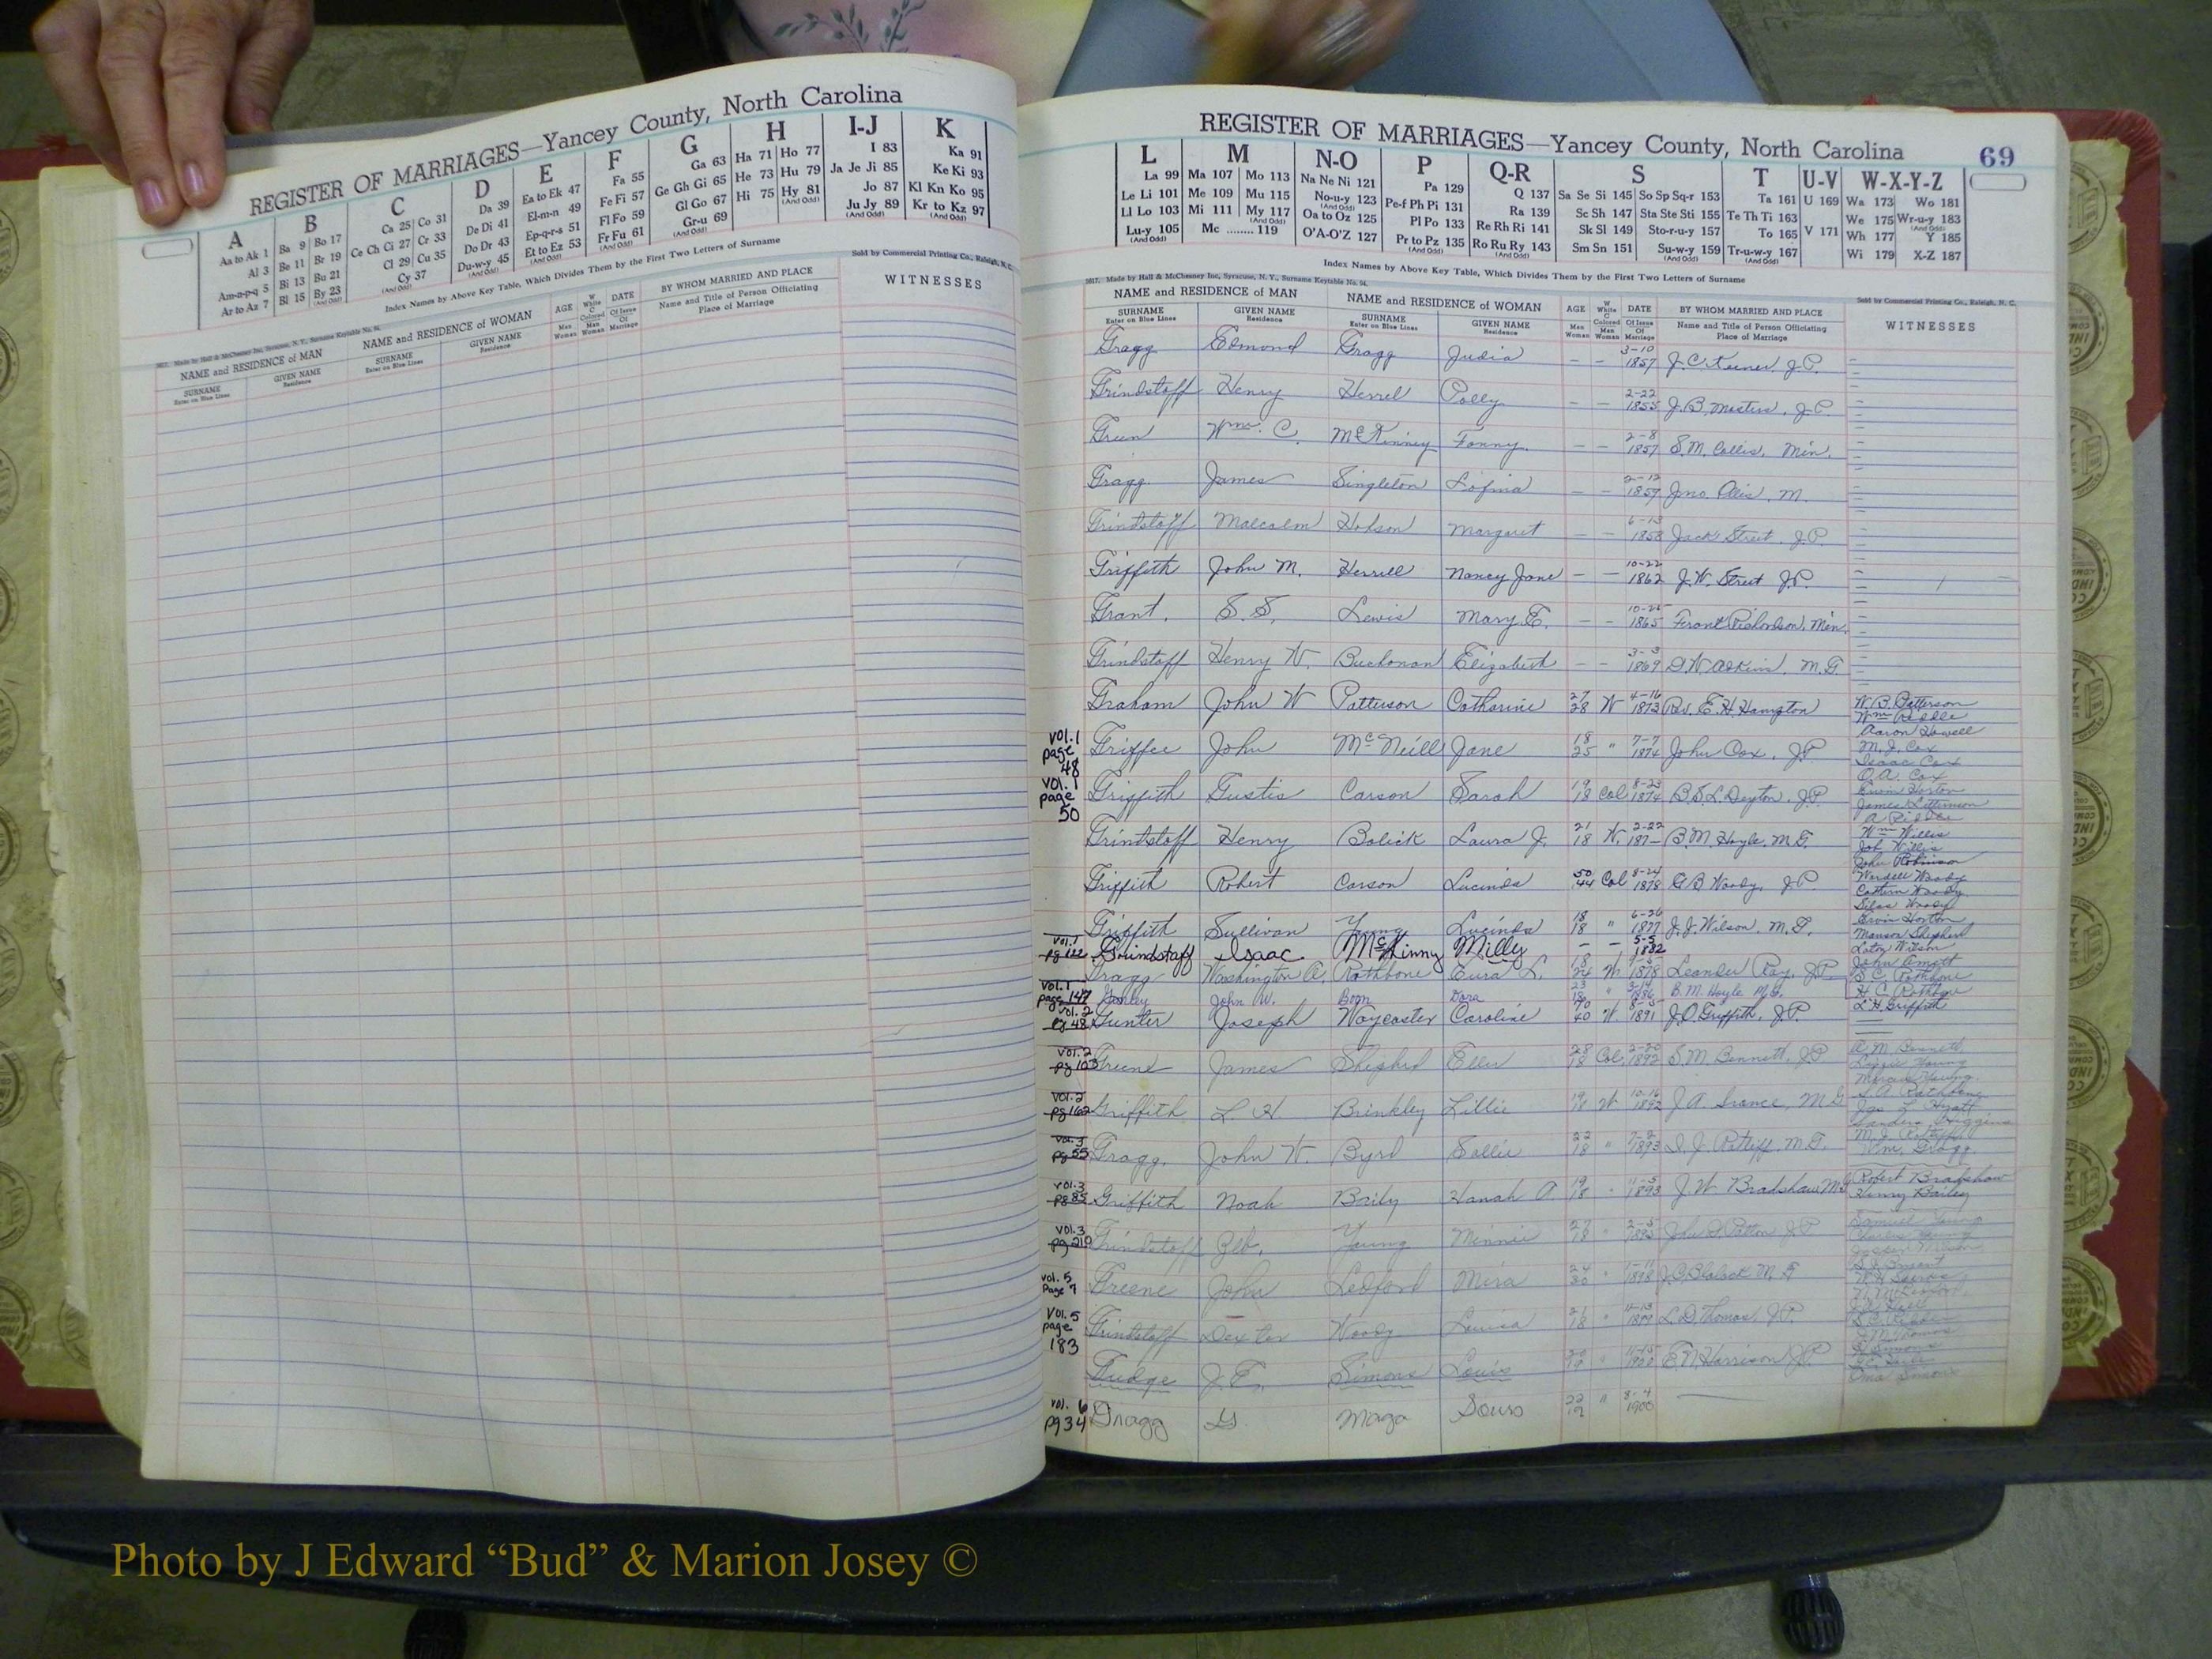 REGISTER OF MARRIAGES—Yancey County, North Carolina
A B C D E F G H I-J K
Aa to Ak 1 Ba 9 Bo 17 Ca 25 Co 31 Da 39 Ea to Ek 47 Fa 55 Ga 63 Ha 71 Ho 77 I 83 Ka 91
Al 3 Be 11 Br 19 Ce Ch Ci 27 Cr 33 De Di 41 El-m-n 49 Fe Fi 57 Ge Gh Gi 65 He 73 Hu 79 Ja Je Ji 85 Ke Ki 93
Am-n-p-q 5 Bi 13 Bu 21 Cl 29 Cu 35 Do Dr 43 Ep-q-r-s 51 Fl Fo 59 Gl Go 67 Hi 75 Hy 81 Jo 87 Kl Kn Ko 95
Ar to Az 7 Bl 15 By 23 Cy 37 Du-w-y 45 Et to Ez 53 Fr Fu 61 Gr-u 69 Ju Jy 89 Kr to Kz 97
(And Odd)
Index Names by Above Key Table, Which Divides Them by the First Two Letters of Surname
Sold by Commercial Printing Co., Raleigh, N. C.
Made by Hall & McChesney Inc, Syracuse, N. Y., Surname Keytable No. 54.
NAME and RESIDENCE of MAN NAME and RESIDENCE of WOMAN AGE W White C Colored DATE BY WHOM MARRIED AND PLACE WITNESSES
SURNAME GIVEN NAME SURNAME GIVEN NAME Men Man Of Issue Of Name and Title of Person Officiating
Enter on Blue Lines Residence Enter on Blue Lines Residence Woman Woman Marriage Place of Marriage
REGISTER OF MARRIAGES—Yancey County, North Carolina 69
L M N-O P Q-R S T U-V W-X-Y-Z
La 99 Ma 107 Mo 113 Na Ne Ni 121 Pa 129 Q 137 Sa Se Si 145 So Sp Sq-r 153 Ta 161 U 169 Wa 173 Wo 181
Le Li 101 Me 109 Mu 115 No-u-y 123 Pe-f Ph Pi 131 Ra 139 Sc Sh 147 Sta Ste Sti 155 Te Th Ti 163 We 175 Wr-u-y 183
Ll Lo 103 Mi 111 My 117 Oa to Oz 125 Pl Po 133 Re Rh Ri 141 Sk Sl 149 Sto-r-u-y 157 To 165 V 171 Wh 177 Y 185
Lu-y 105 Mc ........ 119 O'A-O'Z 127 Pr to Pz 135 Ro Ru Ry 143 Sm Sn 151 Su-w-y 159 Tr-u-w-y 167 Wi 179 X-Z 187
(And Odd)
Index Names by Above Key Table, Which Divides Them by the First Two Letters of Surname
Made by Hall & McChesney Inc, Syracuse, N. Y., Surname Keytable No. 54. Sold by Commercial Printing Co., Raleigh, N. C.
NAME and RESIDENCE of MAN NAME and RESIDENCE of WOMAN AGE W White C Colored DATE BY WHOM MARRIED AND PLACE WITNESSES
SURNAME GIVEN NAME SURNAME GIVEN NAME Men Man Of Issue Of Name and Title of Person Officiating
Enter on Blue Lines Residence Enter on Blue Lines Residence Woman Woman Marriage Place of Marriage
Gragg Edmond Gragg Judia — — 3-10 1857 J. C. Keener J.P.
Grindstaff Henry Herrel Polly — — 2-22 1855 J. B. Masters, J.P.
Green Wm. C. McKinney Fanny — — 2-8 1857 S. M. Collis, Min.
Gragg James Singleton — — 2-12 1859 Jno. Ollis, M.
Grindstaff Malcolm Hobson Margaret — — 6-13 1858 Jack Street, J.P.
Griffith John M. Herrell Nancy Jane — — 10-22 1862 J. W. Street J.P.
Grant. S. S. Lewis Mary E. — — 1865 Richardson, Min.
Grindstaff Henry W. Buchanan Elizabeth — — 3-3 1869 D. W. Adkins, M.G
Graham John W Patterson Catharine 27 28 W 4-16 1873 Rev. E. H. Hampton W. B. Patterson
Wm Riddle
Aaron Howell
Vol. 1 page 48 Griffee John McNeill Jane 18 25 " 7-7 1874 John Cox, J.P. M. J. Cox
Isaac Cox
O. A. Cox
Vol. 1 page 50 Griffith Gustis Carson Sarah 19 18 Col 8-23 1874 B. S. L. Deyton, J.P. Ervin Horton
James
A Riddle
Grindstaff Henry Bolick Laura J. 21 18 W. 2-22 187— B. M. Hoyle, M.G. Wm Willis
Job Willis
John Robinson
Griffith Robert Carson Lucinda 50 44 Col 8-24 1878 G B Woody, J.P. Wardell Woody
Woody
Silas Woody
Griffith Sullivan Young Lucinda 18 18 " 6-26 1877 J. J. Wilson, M.G. Ervin Horton
Manson Shepherd
Wilson
Vol. 1 pg 122 Grindstaff Isaac McKinny Milley — — 5-5 1882
Gragg Washington A. Rathbone L. 18 24 W 1878 Leander Ray, J.P. John
S. C. Rathbone
Vol. 1 page 147 John W. Boon Dora 23 " 1886 B. M. Hoyle M.G. H. C. Rathbone
Vol. 2 pg 48 Gunter Joseph Waycaster Caroline 70 40 W. 8-5 1891 J. O. Griffith, J.P. L. H. Griffith
Vol. 2 pg 103 Greene James Shepherd Ellen 28 18 Col. 2-20 1892 S. M. Bennett, JP Bennett
Lizzie Young
Young
Vol. 2 pg 162 Griffith L H Brinkley Lillie 19 18 W 10-16 1892 J A. M G Rathbone
Jas L Hyatt
Higgins
Vol. 3 pg 55 Gragg. John W. Byrd Sallie 22 18 " 7-2 1893 Ratliff, M.G. Ratliff
Wm. Gragg
Vol. 3 pg 85 Griffith Noah Baily Hanah A 19 18 " 11-5 1893 J W Bradshaw MG Robert Bradshaw
Henry Bailey
Vol. 3 pg 210 Grindstaff Zeb. Young Minnie 27 18 " 2-5 1895 Patton J.P. Samuel Young
Vol. 5 Page 7 Greene John Ledford Mira 24 30 " 1898 Blalock M.G
Vol. 5 page 183 Grindstaff Dexter Woody Louisa 21 18 " 11-13 1899 L. D. Thomas, J.P.
Thomas
Gudge J. E. Simons Louis " 11-15 1900 E. N. Harrison J.P.
Oma Simons
Vol. 6 pg 34 Gragg G. Maga Souro 22 19 " 8-4 1900 —
Photo by J Edward “Bud” & Marion Josey ©